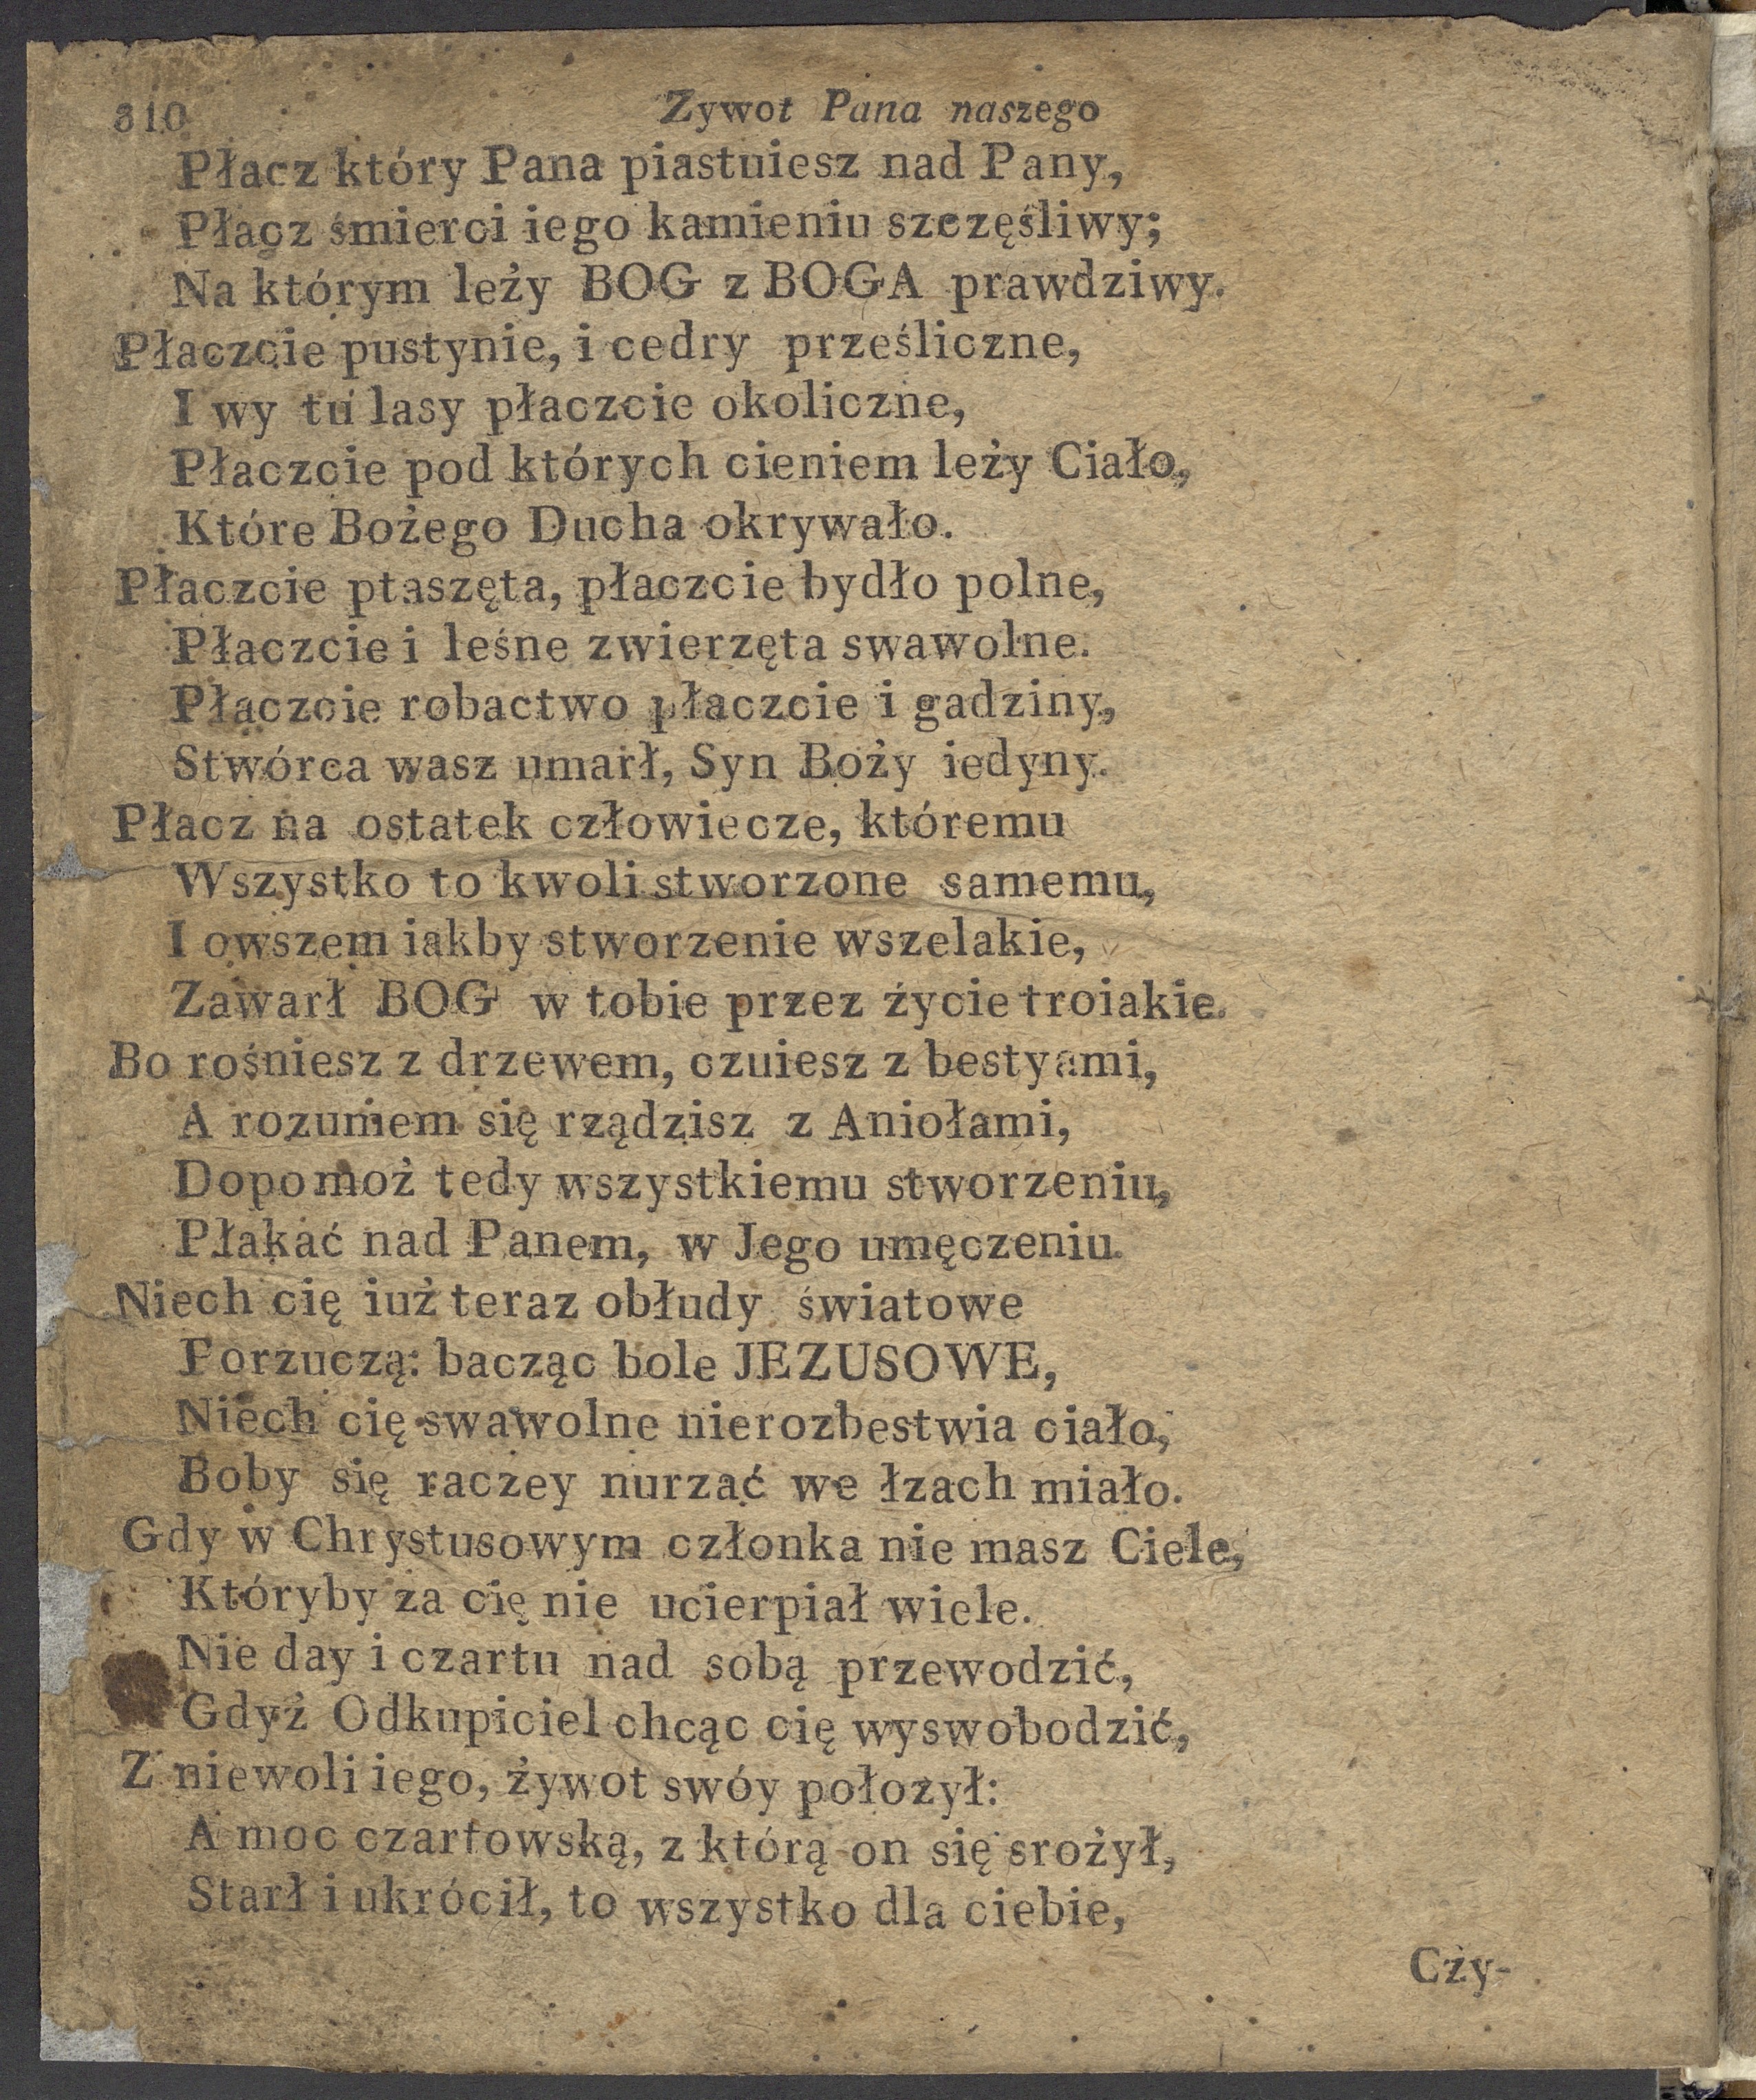 310 Zywot Pana naszego
Płacz który Pana piastuiesz nad Pany,
Płacz śmierci iego kamieniu szczęśliwy;
Na którym leży BOG z BOGA prawdziwy.
Płaczcie pustynie, i cedry prześliczne,
I wy tu lasy płaczcie okoliczne,
Płaczcie pod których cieniem leży Ciało,
Które Bożego Ducha okrywało.
Płaczcie ptaszęta, płaczcie bydło polne,
Płaczcie i leśne zwierzęta swawolne.
Płaczcie robactwo płaczcie i gadziny,
Stwórca wasz umarł, Syn Boży iedyny.
Płacz na ostatek człowiecze, któremu
Wszystko to kwoli stworzone samemu,
I owszem iakby stworzenie wszelakie,
Zawarł BOG w tobie przez życie troiakie.
Bo rośniesz z drzewem, czuiesz z bestyami,
A rozumem się rządzisz z Aniołami,
Dopomoż tedy wszystkiemu stworzeniu,
Płakać nad Panem, w Jego umęczeniu.
Niech cię iuż teraz obłudy światowe
Porzuczą: bacząc bole JEZUSOWE,
Niech cię swawolne nierozbestwia ciało,
Boby się raczey nurzać we łzach miało.
Gdy w Chrystusowym członka nie masz Ciele,
Któryby za cię nie ucierpiał wiele.
Nie day i czartu nad sobą przewodzić,
Gdyż Odkupiciel chcąc cię wyswobodzić,
Z niewoli iego, żywot swóy położył:
A moc czartowską, z którą on się srożył,
Starł i ukrócił, to wszystko dla ciebie,
Czy-